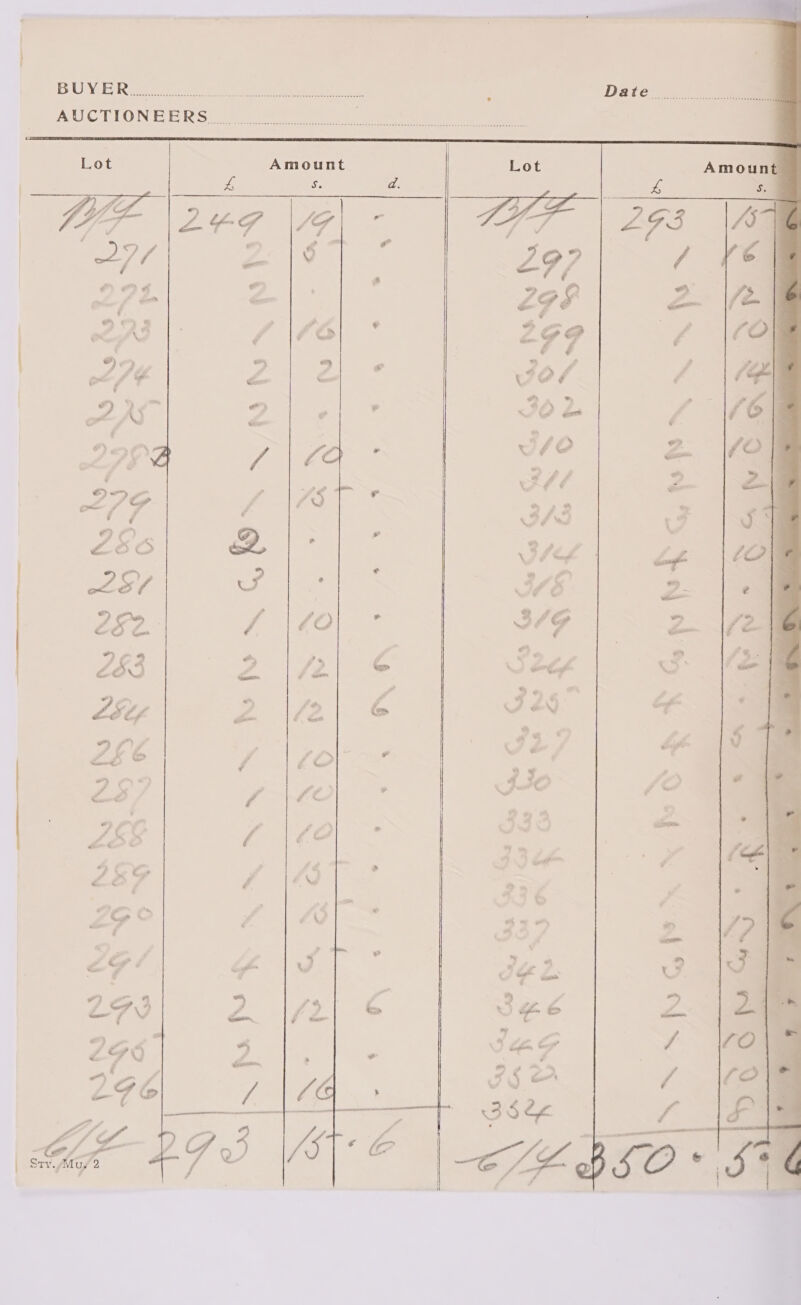 BUYER Date
AUCTIONEERS
Lot Amount
£ s. d.
B/F 249 19 -
271 2 5 -
272 2 . -
273 1 16 -
274 2 2 -
275 2 - -
278 1 10 -
279 1 15 -
280 2 - -
281 3 - -
282 1 10 -
283 2 12 6
284 2 12 6
286 1 10 -
287 1 10 -
288 1 10 -
289 1 15 -
290 1 15 -
291 4 5 -
293 2 12 6
295 2 . -
296 1 16 .
C/F 293 15 . 6
Lot Amount
£ s.
B/F 293 15 6
297 1 16 -
298 2 12 6
299 1 10 -
301 1 14 -
302 1 16 -
310 2 10 -
311 2 2 -
313 3 5 -
314 4 10 -
318 2 - -
319 2 12 6
324 3 12 6
325 4 - -
327 4 5 -
330 10 - -
333 2 - -
334 1 14 -
336 1 - -
337 2 17 6
342 3 3 -
346 2 2 -
349 1 10 -
352 1 10 -
354 1 8 -
C/F 350 . 5 . 6
STY./Mu/2